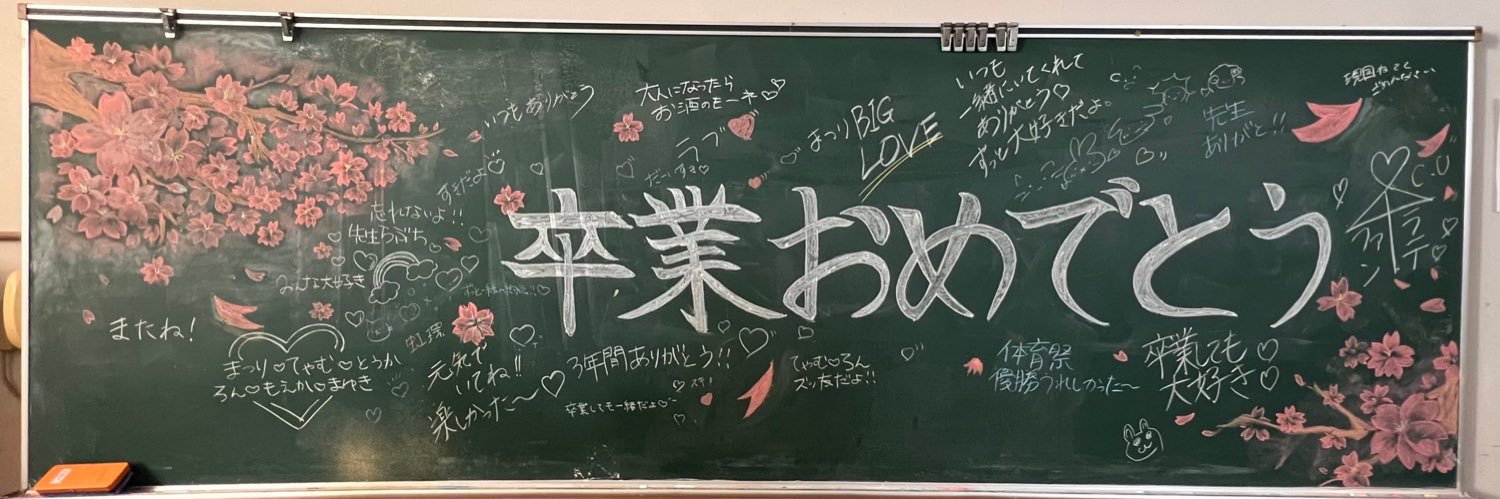 いつもありがとう
大人になったら
お酒のもーネ♡
ラブ
だいすき♡
まつりBIG
LOVE
いつも
一緒にいてくれて
ありがとう♡
ずっと大好きだよ。
先生
ありがと!!
すきだよ♡
忘れないよ!!
先生らぶち
みんな大好き
虹環
卒業おめでとう
C.U
ラテ
ファン
またね!
まつり♡てゃむ♡とうか
ろん♡もえか♡まゆき
元気で
いてね!!
楽しかった〜♡
3年間ありがとう!!
卒業しても一緒だよ♡
てゃむ♡ろん
ズッ友だよ!!
体育祭
優勝うれしかった〜
卒業しても♡
大好き♡